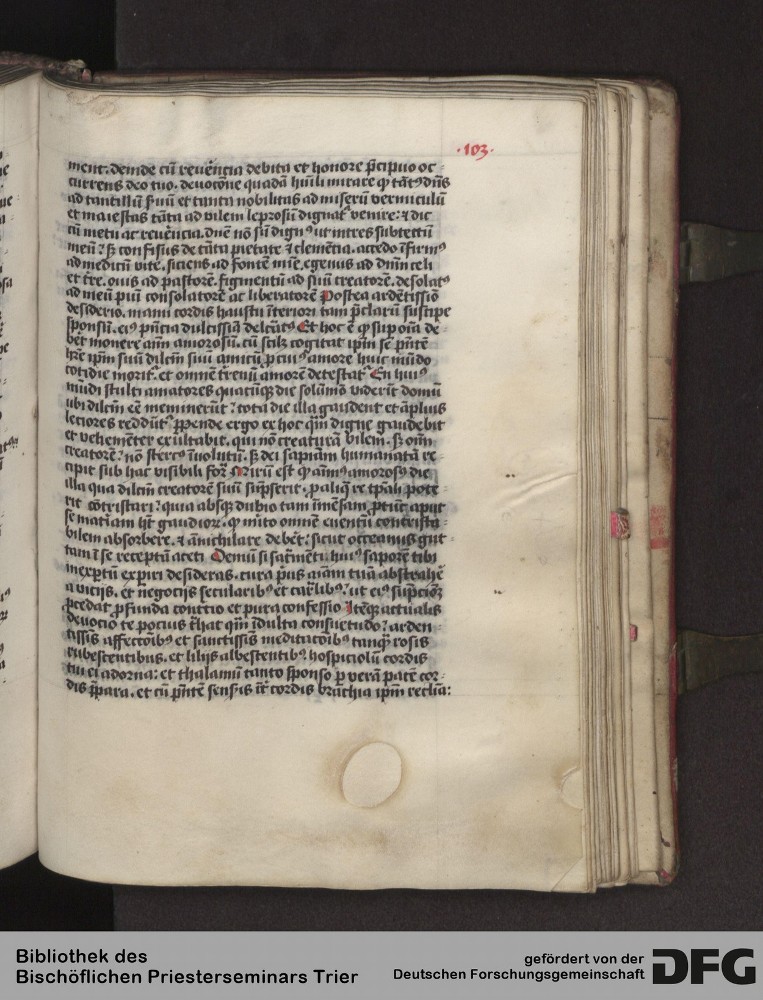 ·103·
ment. deinde cū reuerēcia debita et honore p̄cipuo oc
currens deo tuo. deuocōne quadā hūili mirare ꝙ tātꝰ dn̄s
ad tantillū ẜuū et tanta nobilitas ad miserū vermiculū
et maiestas tāta ad vilem leprosū dignat᷑ venire: ⁊ dic
cū metu ac reuerēcia. dn̄e nō sū dignꝰ ut intres sub tectū
meū? ẜꝫ confisus de tāta pietate ⁊ clemētia. accedo īfirmꝰ
ad medicū vite. siciens ad fontē mīe. egenus ad dn̄m celi
et t̄re. ouis ad pastorē. figmentū ad suū creatorē. desolatꝰ
ad meū piū consolatorē ac liberatorē Postea ardētissīo
desiderio. manu cordis haustu īteriori tam p̄clarū suscipe
sponsū. eiꝰ pn̄tia dulcissīa delc̄atꝰ Et hoc ē ꝙ sup oīa de
bet monere aīm amorosū. cū scilꝫ cogitat ip̄m se pn̄tē
hr̄e ip̄m suū dilc̄m suū amicū ꝓ cuiꝰ amore huic mūdo
cotidie morit᷑. et omnē t̄renū amorē detestat᷑ En huiꝰ
mūdi stulti amatores quācūqꝫ die solūmō viderīt domū
ubi dilc̄m eē meminerūt? tota die illa gaudent et āplius
letiores reddūt᷑. ꝑpende ergo ex hoc qm̄ digne gaudebit
et vehemēter exultabit. qui nō creaturā vilem. ẜꝫ om̄
creatorē? nō stercꝰ īuolutū. ẜꝫ dei sapiam humanatā re
cipit sub hac visibili for̄ Mirū est ꝙ aīmꝰ amorosꝰ die
illa qua dilc̄m creatorē suū sūpserit. ꝓ aliq̄ re tp̄ali pote
rit cōtristari? quia absqꝫ dubio tam īmēsam ꝓtūc apud
se matiam hꝫ gaudiorꝫ. ꝙ mīto omnē euentū contrista
bilem absorbere. ⁊ ānichilare debet? sicut occeanus gut
tam ī se receptā aceti Demū si sac̄mēti huiꝰ saporē tibi
inexptū expiri desideras. cura pꝰus aīam tuā abstrahe
a vicijs. et negocijs secularibꝰ et carl̄ibꝰ? ut eiꝰ sūpcōꝫ
p̄cedat ꝓfunda contricio et pura confessio Iteqꝫ actualis
deuocio te pocius t̄hat qm̄ īdulta consuetudo? arden
tissis affectōibꝰ et sanctissis meditacōibꝰ tanqꝫ rosis
rubescentibus. et lilijs albescentibꝰ hospiciolū cordis
tui ei adorna: et thalamū tanto sponso ꝑ verā pacē cor
dis p̄para. et cū pn̄tē sensis īt᷑ cordis brachia ip̄m reclīa:
Bibliothek des
Bischöflichen Priesterseminars Trier
gefördert von der
Deutschen Forschungsgemeinschaft
DFG